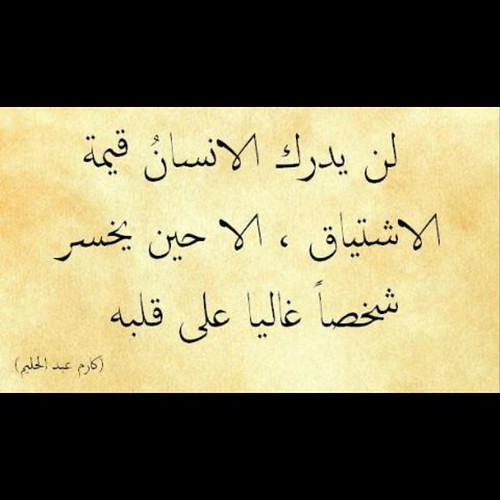 لن يدرك الانسانُ قيمة
الاشتياق ، الا حين يخسر
شخصاً غاليا على قلبه
(كارم عبد الحليم)